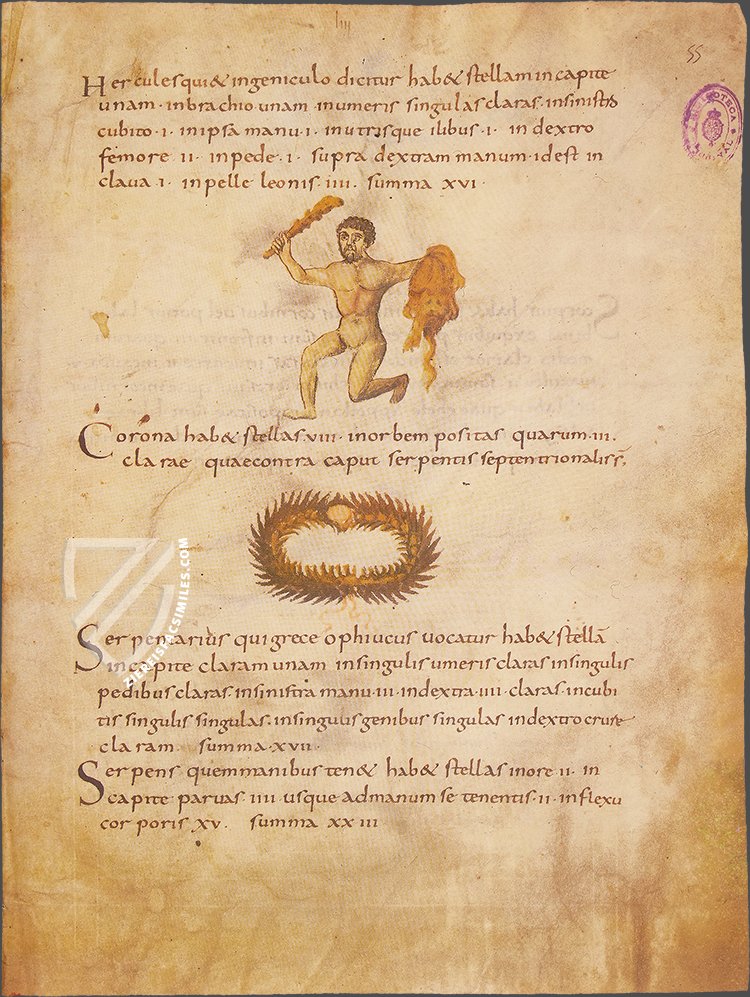 liii
55
Hercules qui & ingeniculo dicitur hab& stellam in capite
unam · in brachio unam · in umeris singulas claras · in sinistro
cubito · i · in ipsa manu · i · in utrisque ilibus · i · in dextro
femore ii · in pede · i · supra dextram manum · idest in
claua · i · in pelle leonis · iiii · summa xvi ·
Corona hab& stellas · viii · in orbem positas quarum · iii ·
clarae quae contra caput serpentis septentrionalis
BIBLIOTECA
ZIEREIS FACSIMILES.COM
Serpentarius qui grece ophiucus uocatur hab& stellā
in capite claram unam in singulis umeris claras in singulis
pedibus claras · in sinistra manu · iii · in dextra · iiii · claras · in cubi
tis singulis singulas · in singulis genibus singulas in dextro crure
claram summa · xvii ·
Serpens quem manibus ten& hab& stellas in ore ii · in
capite paruas · iiii · usque ad manum se tenentis · ii · in flexu
corporis xv · summa xxiii